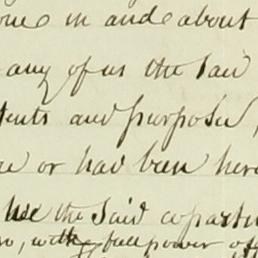 one in and about
any of us the said
tents and purposes,
or had been here
Use the Said copartn
with full power of